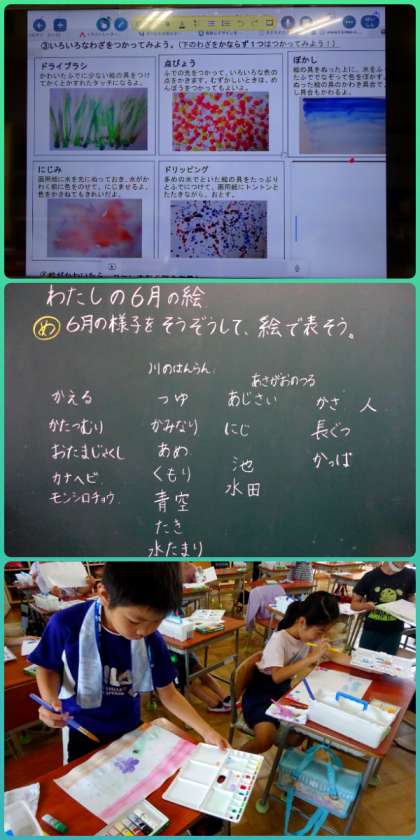 ③いろいろなわざをつかってみよう。(下のわざをかならず1つはつかってみよう!)
ドライブラシ
かわいたふでに少ない絵の具をつけ
てかくとかすれたタッチになるよ。
点びょう
ふでの先をつかって、いろいろな色の
点をかきます。むずかしいときは、めん
ぼうをつかってもよいよ。
ぼかし
絵の具をぬった上に、水をふ
にじみ
画用紙に水を先にぬっておき、水がか
わく前に色をのせて、にじませるよ。
色をかさねてもきれいだよ。
ドリッピング
多めの水でといた絵の具をたっぷり
とふでにつけて、画用紙にトントンと
たたきながら、おとす。
わたしの6月の絵
め 6月の様子をそうぞうして、絵で表そう。
かえる
かたつむり
おたまじゃくし
カナヘビ
モンシロチョウ
川のはんらん
つゆ
かみなり
あめ
くもり
青空
たき
水たまり
あさがおのつる
あじさい
にじ
池
水田
かさ 人
長ぐつ
かっぱ